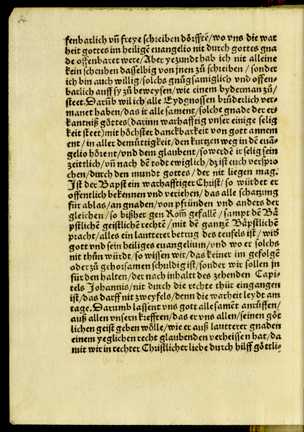 fenbarlich vñ freye schreiben dörffte/ wo vns die war
heit gottes im heiligē euangelio nit durch gottes gna
de offenbaret were/ Aber yezundt hab ich nit alleine
kein scheuhen dasselbig von jnen zů schreiben / sonder
ich bin auch willig/ solchs gnůgsamiglich vnd offen-
barlich auff sy zů beweysen/ wie einem byderman zů/
steet. Darūb wil ich alle Eydgnossen brüderlich ver-
manet haben/ das jt alle sament/ solche gnade der er-
kantniß gottes/ darinn warhafftig vnser einige selig
keit steet/ mit höchster danckbarkeit von gott annem
ent / in aller demüttigkeit/ den kurtzen weg in dē euā-
gelio hörent/ vnd dem glaubent/ so werdē jt selig sein
zeittlich/ vñ nach dē todt ewiglich/ dz ist euch verspro
chen/ durch den mundt gottes / der nit liegen mag.
Ist der Bapst ein warhafftiger Christ/ so würdt er
offentlich bekennen vnd verichen/ das alle schatzung
für ablas/ an gnaden/ von pfründen vnd anders der
gleichen/ so bißher gen Rom gefallē/ sampt dē Bä
pstliche geistliche rechtē/ mit dē gantzē Bäpstliche
pracht/ alles ein lautterer betrug des teüfels ist/ wid
gott vnd sein heiliges euangelium/ vnd wo er solchs
nit thůn würdt/ so wissen wir/ das keiner im gefolge
oder zů gehorsamen schuldig ist/ sonder wir sollen jn
für den halten/ der nach inhalt des zehenden Capi-
tels Johannis/ nit durch die rechte thür eingangen
ist/ das darff nit zweyfels/ denn die warheit leydt am
tage. Darumb lassent vns gott alle samēt anrüffen/
auß allen vnsern krefften/ das er vns allen/ seinen göt
lichen geist geben wölle/ wie er auß lautterer gnaden
einem yeglichen recht glaubenden verheissen hat/ da
mit wir in rechter Christlicher liebe durch hilff göttli-